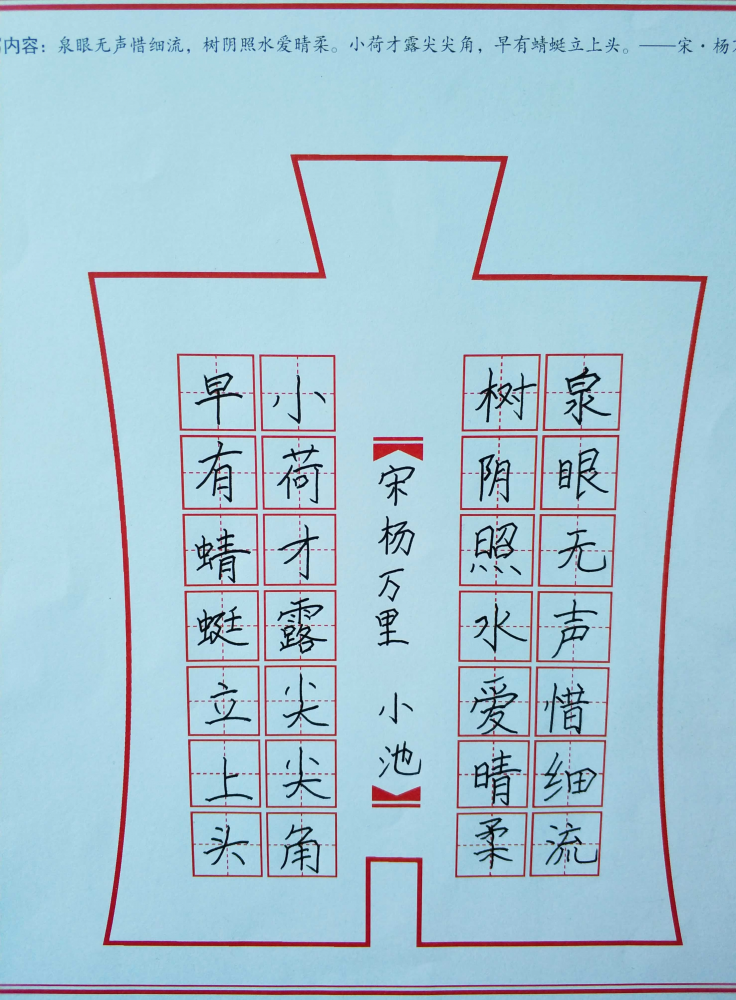 内容：泉眼无声惜细流，树阴照水爱晴柔。小荷才露尖尖角，早有蜻蜓立上头。——宋·杨
泉眼无声惜细流
树阴照水爱晴柔
宋杨万里 小池
小荷才露尖尖角
早有蜻蜓立上头